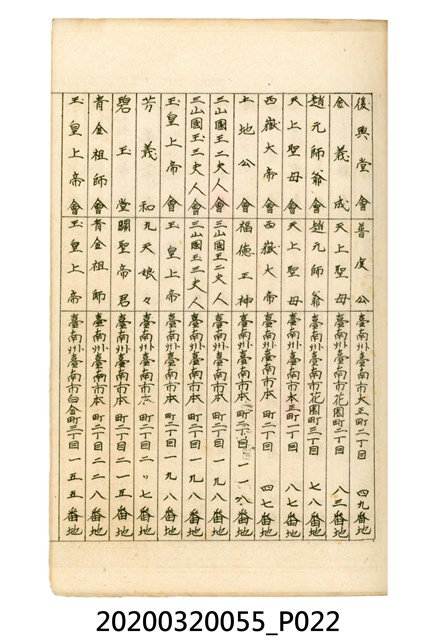 復興堂會 普度公 臺南州臺南市大正町二丁目 四九番地
金義成 天上聖母 臺南州臺南市花園町二丁目 八三番地
趙元師爺會 趙元師爺 臺南州臺南市花園町三丁目 七八番地
天上聖母會 天上聖母 臺南州臺南市大正町一丁目 八七番地
西嶽大帝會 西嶽大帝 臺南州臺南市本町二丁目 四七番地
土地公會 福德正神 臺南州臺南市本町二丁目 一一八番地
三山國王二大人會 三山國王二大人 臺南州臺南市本町二丁目 一九八番地
三山國王三大人會 三山國王三大人 臺南州臺南市本町二丁目 一九八番地
玉皇上帝會 玉皇上帝 臺南州臺南市本町二丁目 一九八番地
芳義和 九天娘々 臺南州臺南市本町二丁目 二〃七番地
碧玉堂 關聖帝君 臺南州臺南市本町二丁目 二一五番地
青金祖師會 青金祖師 臺南州臺南市本町二丁目 二二八番地
玉皇上帝會 玉皇上帝 臺南州臺南市白金町三丁目 一五五番地
20200320055_P022